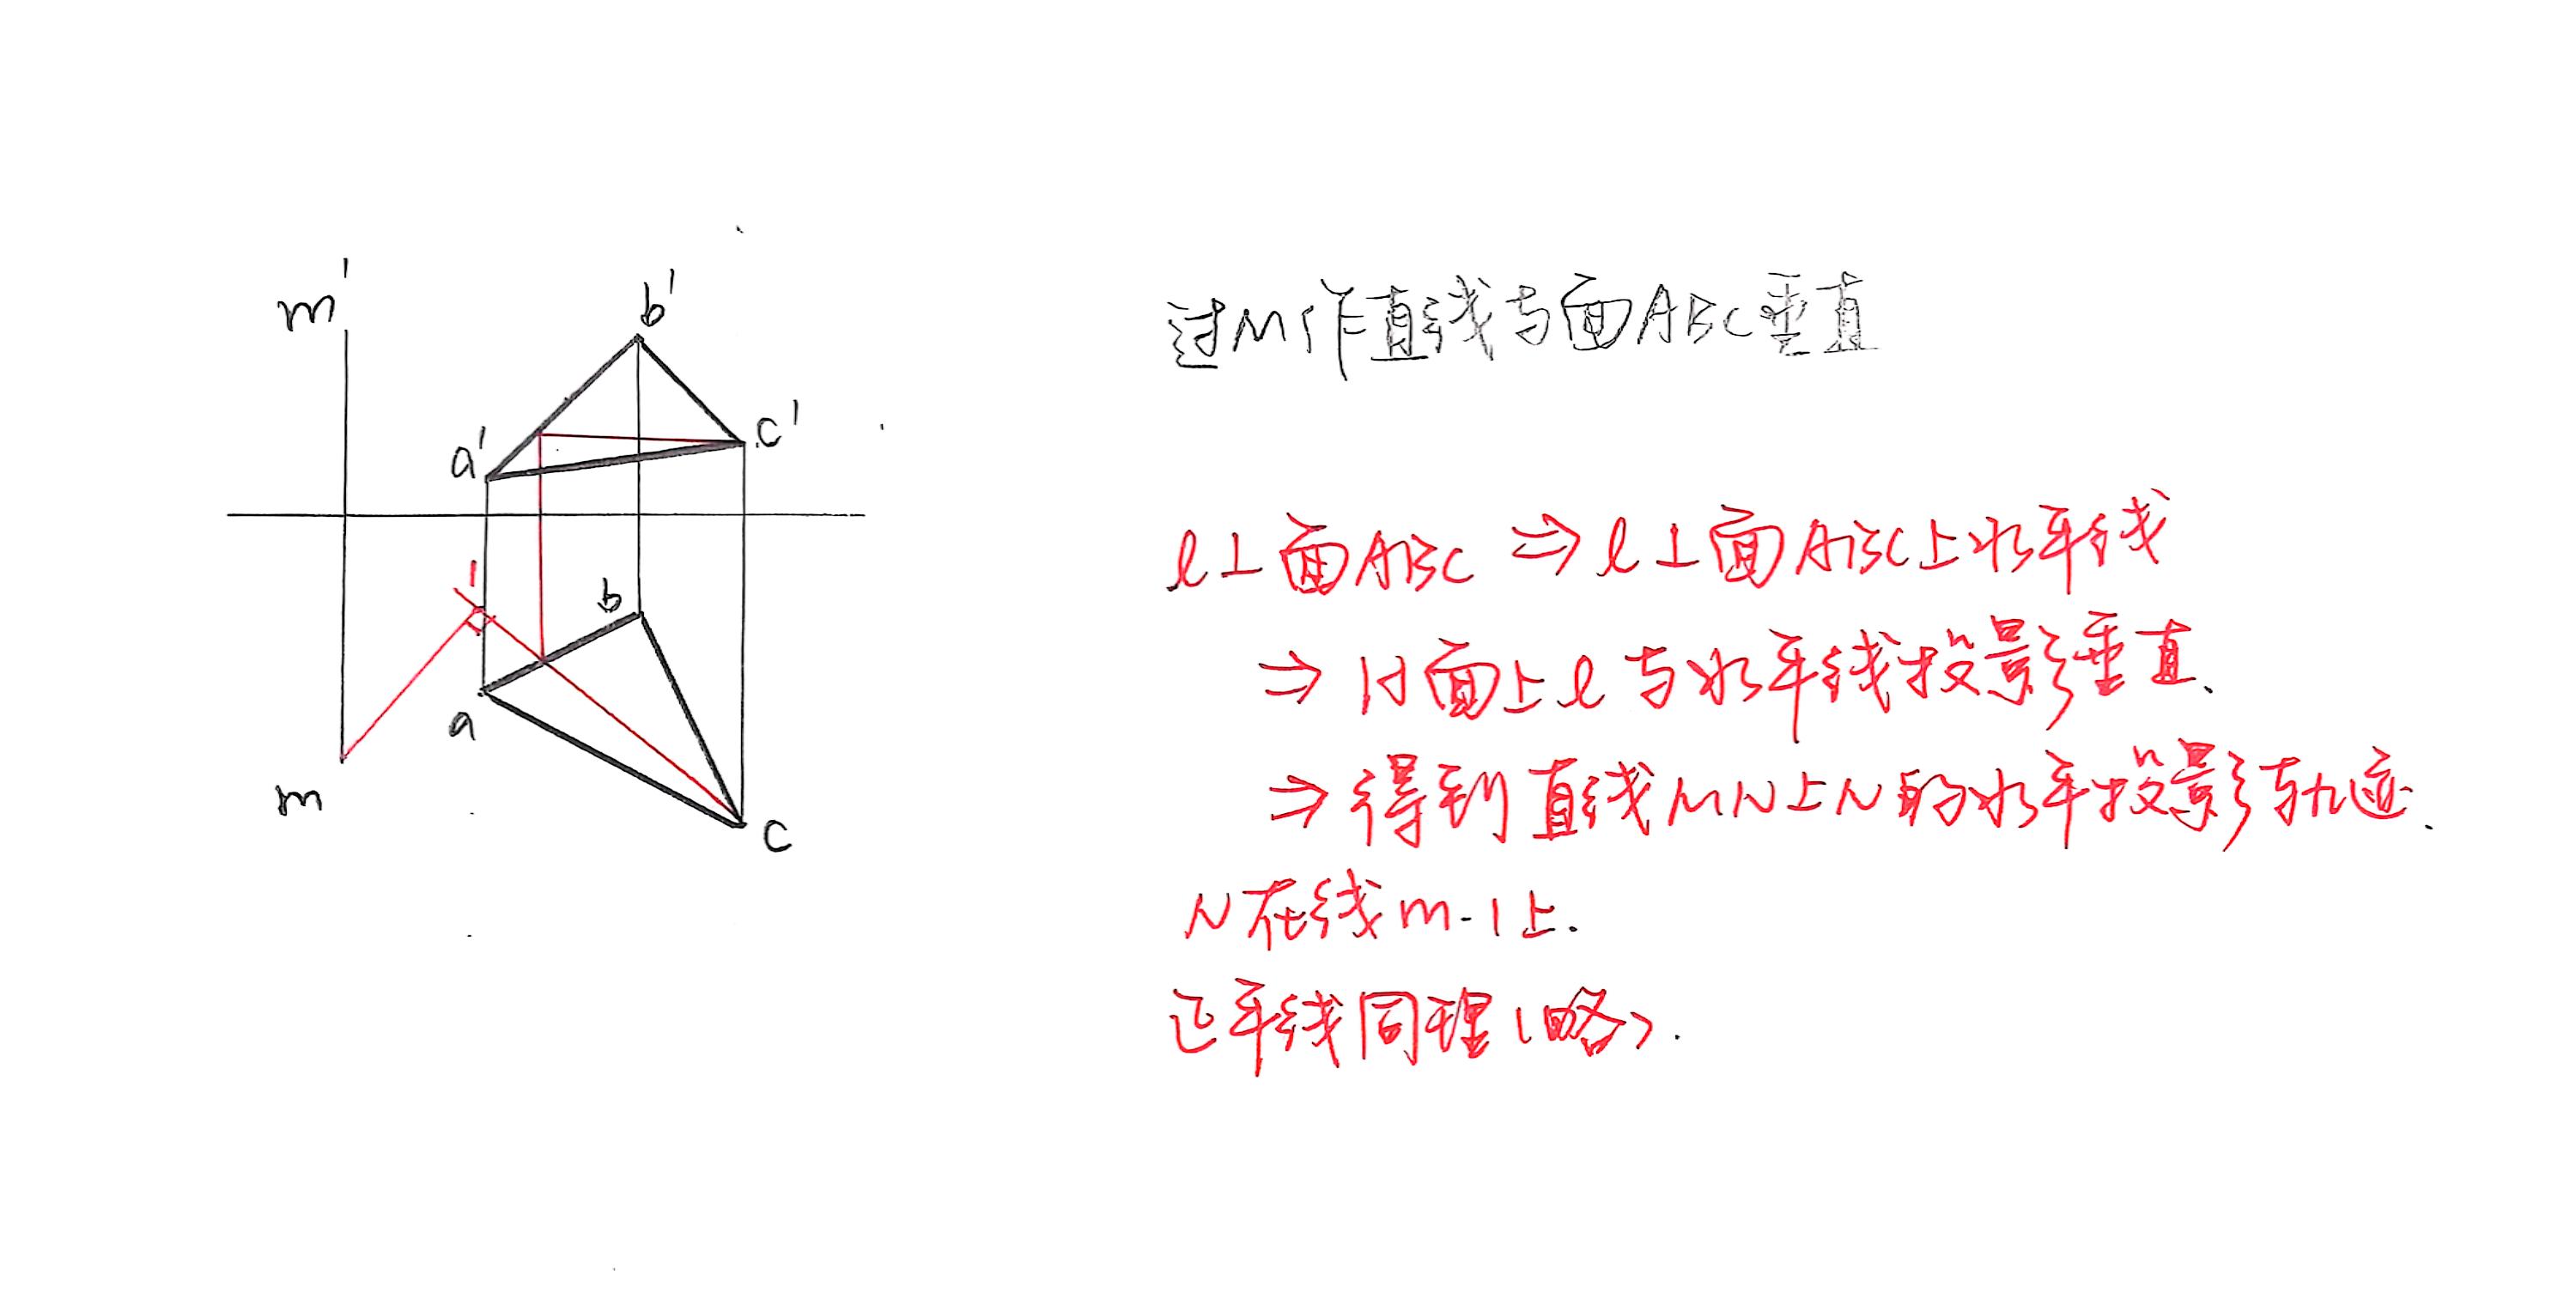 m'
b'
a'
c'
1
b
a
m
c
过M作直线与面ABC垂直
l⊥面ABC ⇒ l⊥面ABC上水平线
⇒ H面上l与水平线投影垂直.
⇒ 得到直线MN上N的水平投影轨迹.
N在线m-1上.
正平线同理(略).